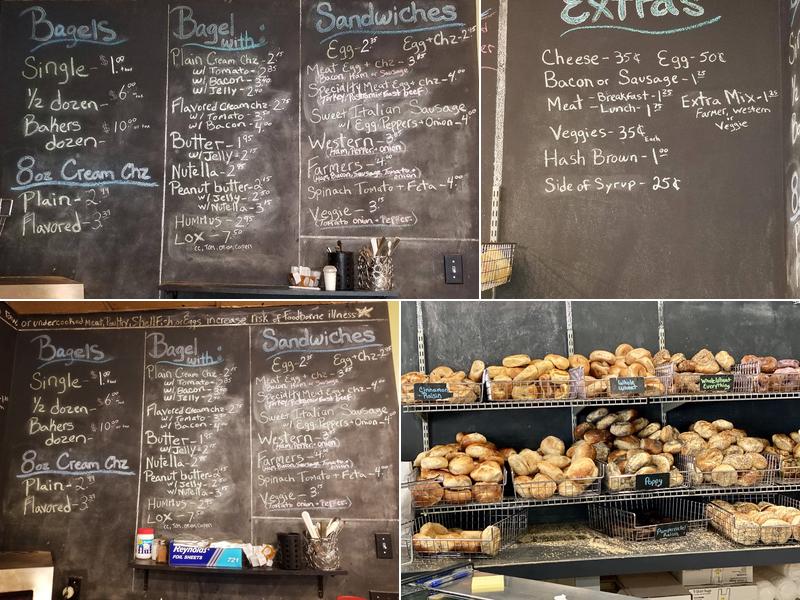 Bagels
Single - $1.00 +tax
1/2 dozen - $6.00
Bakers $10.00
dozen-
8oz Cream Chz
Plain - 2.99
Flavored - 3.99
Bagel
with:
Plain Cream Chz - 2.15
w/ Tomato - 2.85
w/ Bacon - 3.40
w/ Jelly - 2.40
Flavored Cream chz - 2.75
w/ Tomato - 3.
w/ Bacon - 4.00
Butter - 1.95
w/ Jelly - 2.15
Nutella - 2.
Peanut butter - 2.15
w/ Jelly - 2.50
w/ Nutella - 3.15
Hummus - 2.95
Lox - 7.50
cc, Tom, onion, capers
Sandwiches
Egg - 2.35 Egg + Chz - 2.95
Meat Egg + chz - 3.
Bacon, Ham or Sausage
Specialty Meat Egg + chz - 4.00
Turkey, Pastrami, Roast beef
Sweet Italian Sausage
w/ Egg Peppers + Onion - 4.00
Western - 3.
(Ham, Pepper + onion)
Farmers - 4.
(Ham, Bacon, Sausage, Tomato + onion)
Spinach Tomato + Feta - 4.00
Veggie - 3.
(Tomato onion + Pepper)
Extras
Cheese - 35¢ Egg - 50¢
Bacon or Sausage - 1.25
Meat - Breakfast - 1.25
- Lunch - 1.75
Extra Mix - 1.25
Farmer, Western
or
Veggie
Veggies - 35¢ Each
Hash Brown - 1.00
Side of Syrup - 25¢
or undercooked Meat, Poultry, Shellfish or Eggs increase risk of Foodborne illness
Bagels
Single - $1.00
1/2 dozen - $6.00
Bakers $10.00
dozen-
8oz Cream Chz
Plain - 2.99
Flavored - 3.99
Bagel
with:
Plain Cream Chz
w/ Tomato
w/ Bacon
w/ Jelly
Flavored Cream chz
w/ Tomato
w/ Bacon
Butter
w/ Jelly
Nutella
Peanut butter
w/ Jelly
w/ Nutella
Hummus
Lox
cc, Tom, onion, capers
Sandwiches
Egg Egg + Chz
Meat Egg + chz
Specialty Meat Egg + chz
Sweet Italian Sausage
w/ Egg Peppers + Onion
Western
(Ham, Pepper + onion)
Farmers
Spinach Tomato + Feta
Veggie
(Tomato onion + Pepper)
fluff
Reynolds
FOIL SHEETS
721
Cinnamon
Raisin
Whole
Wheat
Whole Wheat
Everything
Poppy
Pumpernickel
Raisin